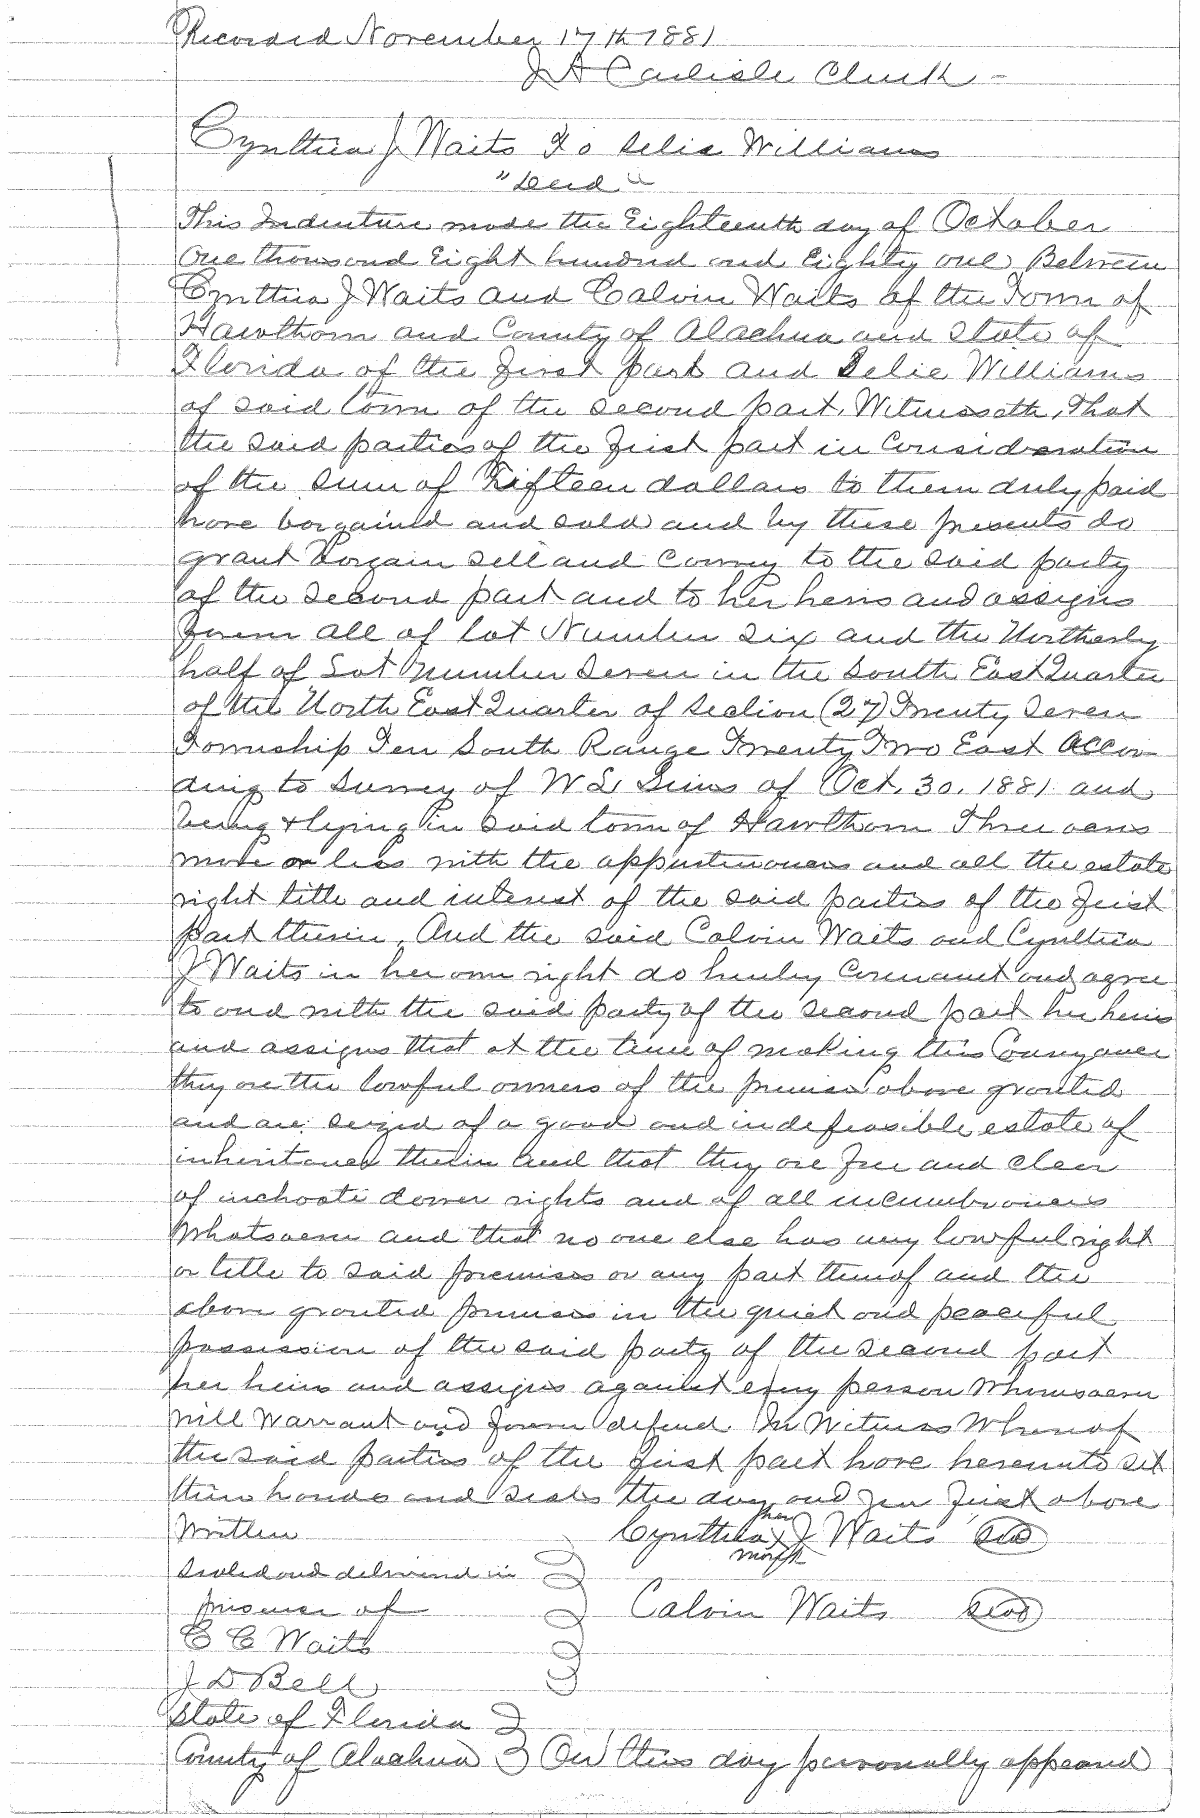 Recorded November 17th 1881
J A Carlisle Clerk -
Cynthia J Waits To Delie Williams
"Deed"
This Indenture made the Eighteenth day of October
One thousand Eight hundred and Eighty one Between
Cynthia J Waits and Calvin Waits of the Town of
Hawthorn and County of Alachua and State of
Florida of the first part and Delie Williams
of said town of the second part. Witnesseth, That
the said parties of the first part in consideration
of the sum of Fifteen dollars to them duly paid
have bargained and sold and by these presents do
grant bargain sell and convey to the said party
of the second part and to her heirs and assigns
forever all of lot Number six and the Northerly
half of Lot Number Seven in the South East Quarter
of the North East Quarter of Section (27) Twenty Seven
Township Ten South Range Twenty Two East Accor
ding to Survey of W L Sims of Oct. 30. 1881 and
being & lying in said town of Hawthorn Three acres
more or less with the appurtenances and all the estate
right title and interest of the said parties of the first
part therein. And the said Calvin Waits and Cynthia
J Waits in her own right do hereby covenant and agree
to and with the said party of the second part her heirs
and assigns that at the time of making this Conveyance
they are the lawful owners of the premises above granted
and are seized of a good and indefeasible estate of
inheritance therein and that they are free and clear
of inchoate dower rights and of all incumbrances
whatsoever and that no one else has any lawful right
or title to said premises or any part thereof and the
above granted premises in the quiet and peaceful
possession of the said party of the second part
her heirs and assigns against every person whomsoever
will warrant and forever defend. In Witness Whereof
the said parties of the first part have hereunto set
their hands and seals the day and year first above
Written
Cynthia her x mark J Waits seal
Sealed and delivered in
presence of
Calvin Waits seal
C C Waits
J D Bell
State of Florida
County of Alachua On this day personally appeared